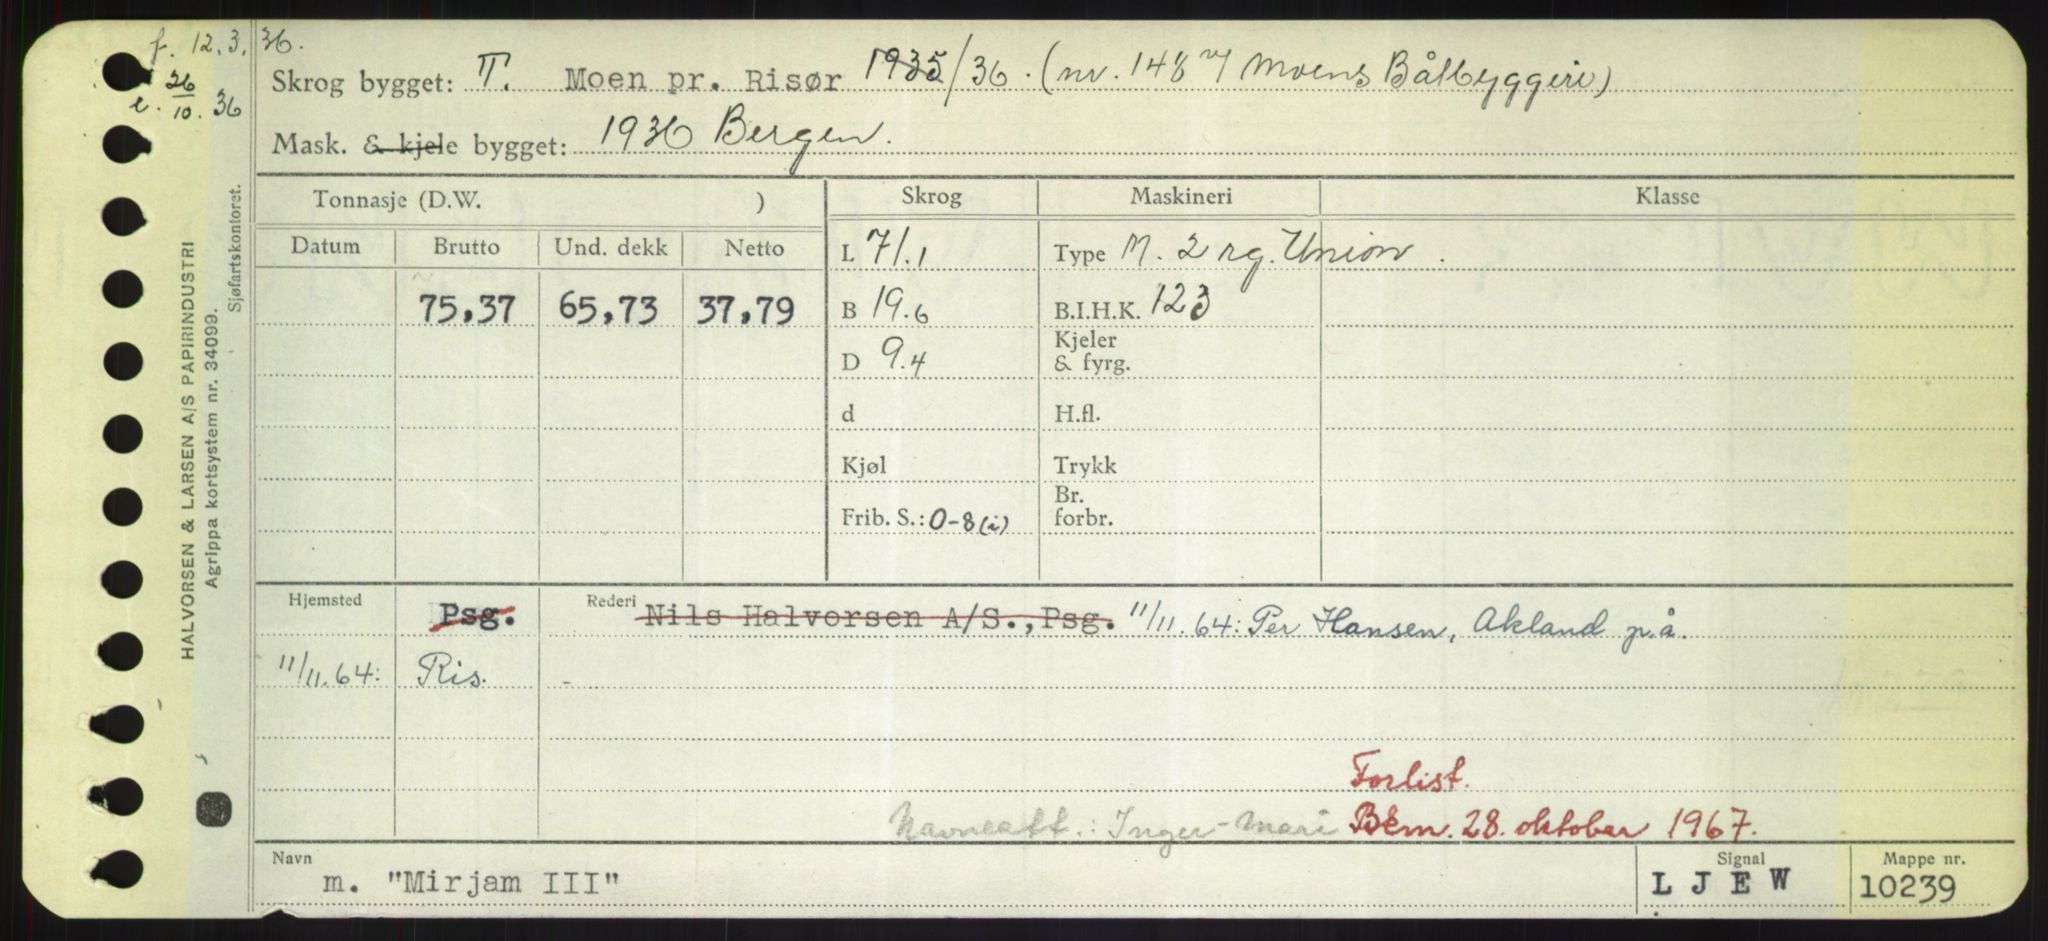 f. 12.3.36.
Skrog bygget: T. Moen pr. Risør 1935/36. (nr. 148 v/ Moens Båtbyggeri)
e. 26/10. 36
Mask. & kjele bygget: 1936 Bergen.
Tonnasje (D.W. ) Skrog Maskineri Klasse
Datum Brutto Und. dekk Netto
L 71.1 Type M. 2 rg. Union.
75,37 65,73 37,79 B 19.6 B.I.H.K. 123
D 9.4 Kjeler & fyrg.
d H.fl.
Kjøl Trykk
Frib. S.: 0-8 (i) Br. forbr.
Hjemsted Psg. Rederi Nils Halvorsen A/S., Psg. 11/11.64: Per Hansen, Akland p.å.
11/11.64: Ris. -
Forlist.
Navneatt.: Inger-Mari Bém. 28. oktober 1967.
Navn Signal Mappe nr.
m. "Mirjam III" L J E W 10239
HALVORSEN & LARSEN A/S PAPIRINDUSTRI
Agrippa kortsystem nr. 34099.
Sjøfartskontoret.